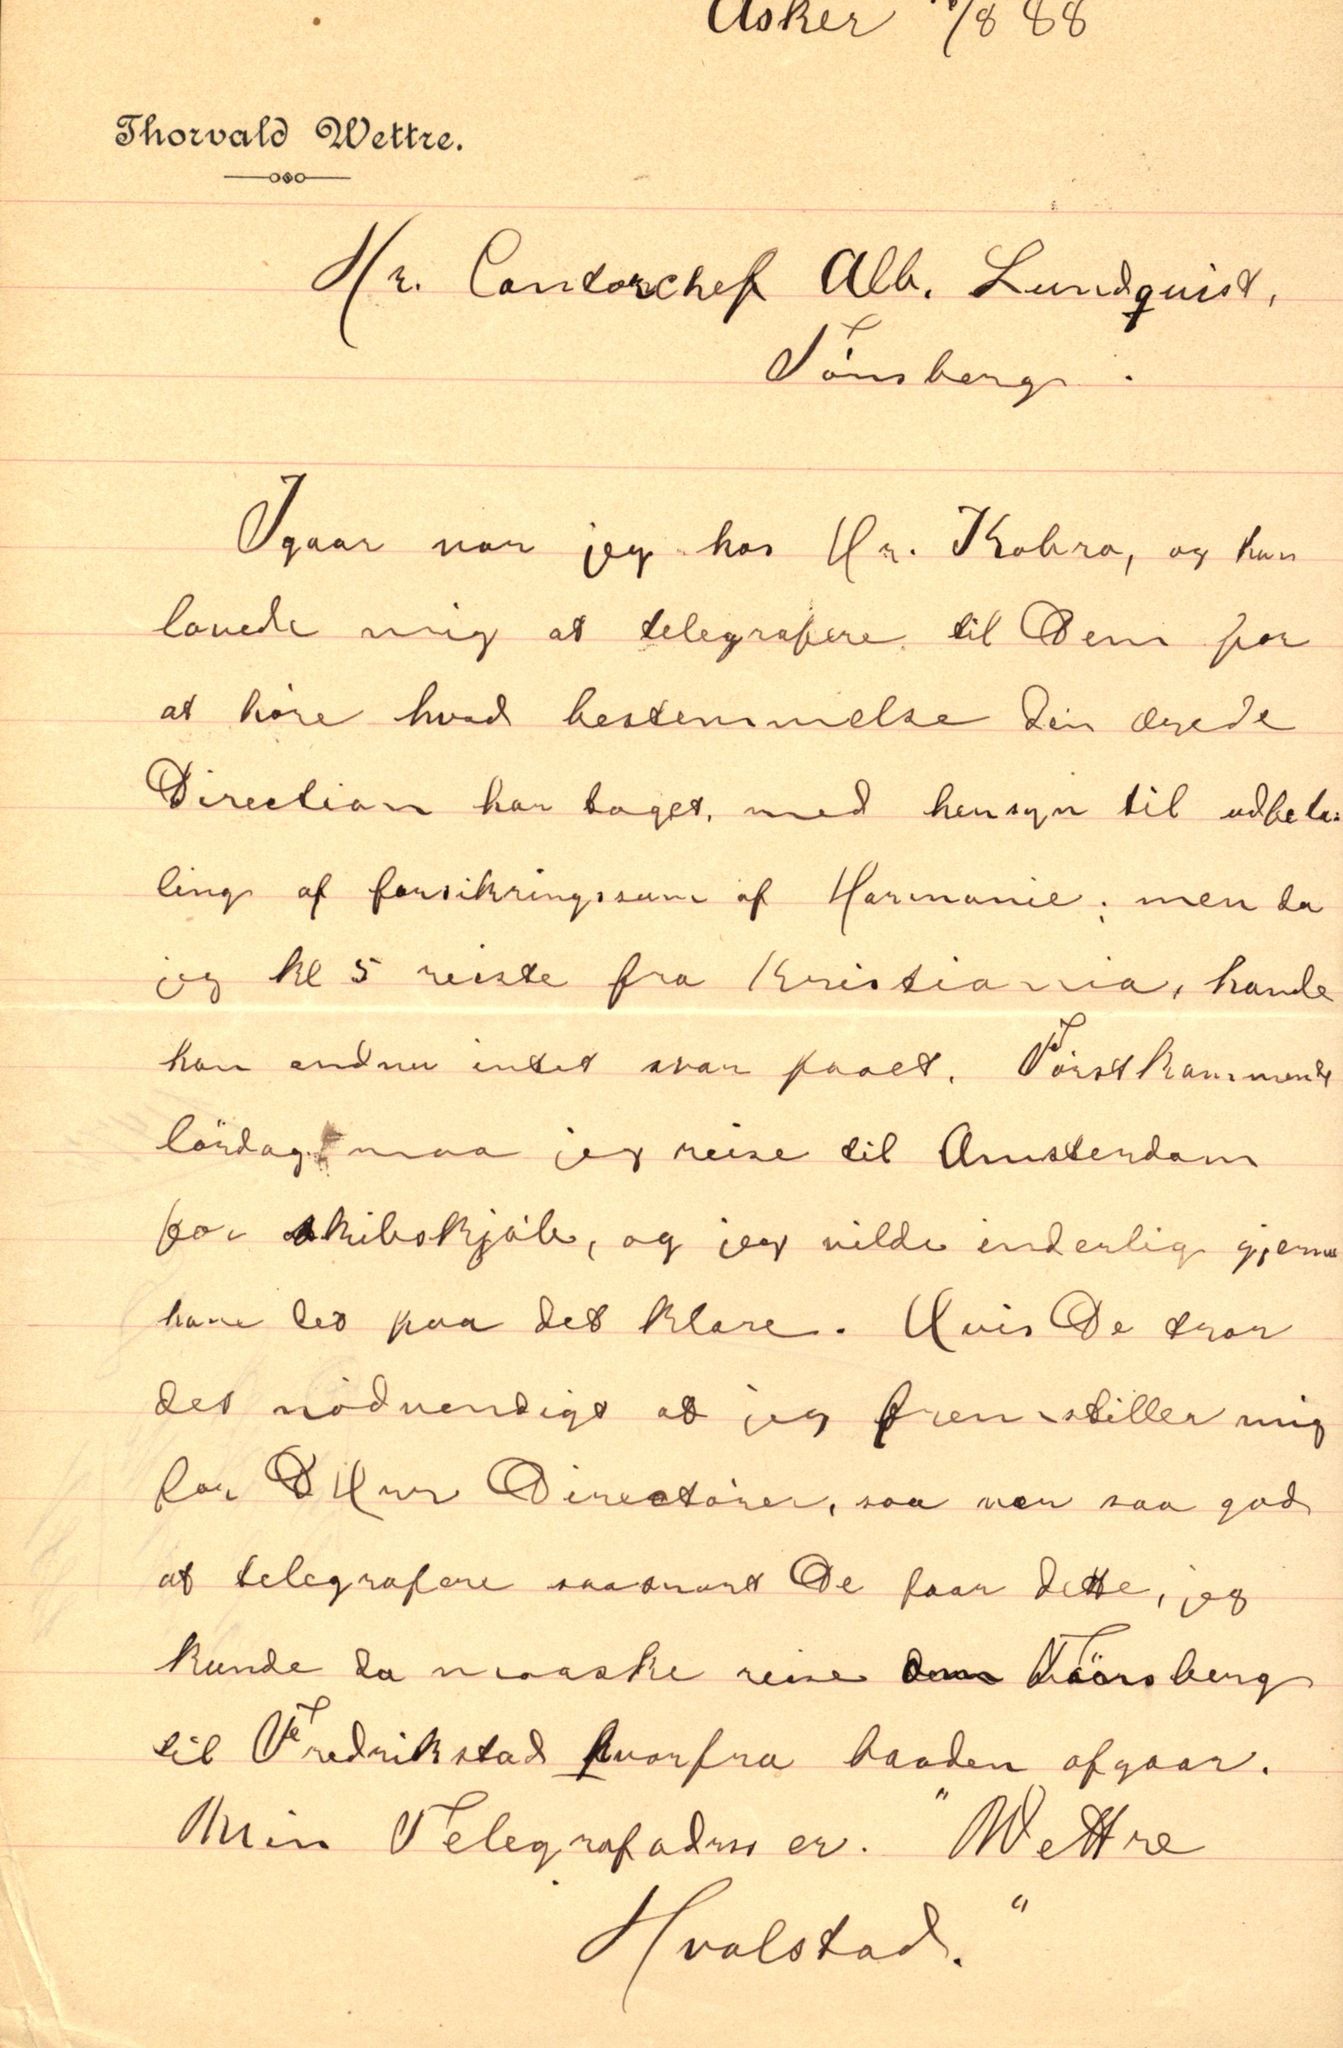 Asker /8 88
Thorvald Wettre.
Hr. Contorchef Alb. Lundquist,
Tönsberg.
Igaar var jeg hos Hr. Kobro, og han
lovede mig at telegrafere til Dem for
at höre hvad bestemmelse den ærede
Direction har taget, med hensyn til udbeta-
ling af forsikringssum af Harmonie; men da
jeg kl 5 reiste fra Kristiania, havde
han endnu intet svar faaet. Förstkommende
lördag maa jeg reise til Amsterdam
for skibskjöb, og jeg vilde inderlig gjerne
have det paa det klare. Hvis De tror
det nödvendigt at jeg fremstiller mig
for D Hrrr Directörer, saa vær saa god
at telegrafere saasnart De faar dette, jeg
kunde da maaske reise om Töesberg
til Fredrikstad hvorfra baaden afgaar.
Min Telegrafadrss er. "Wettre
Hvalstad."